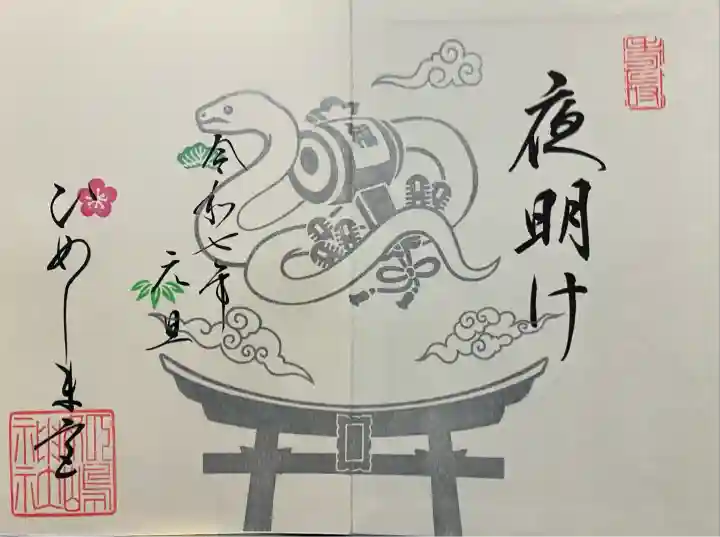 夜明け
令和七年
元旦
ひめしま宮
姫嶋神社